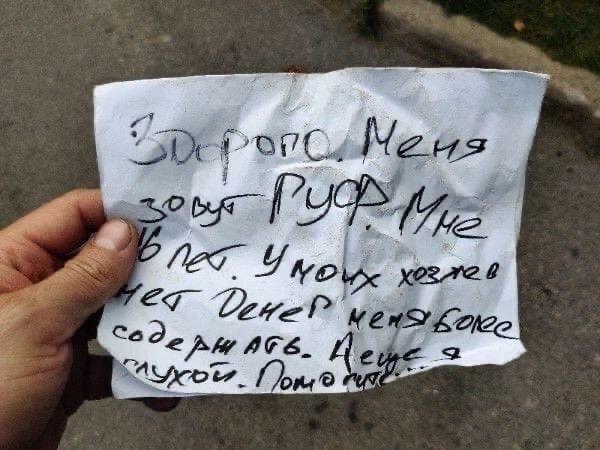 Здорого. Меня
зовут ГУФ. Мне
16 лет. У моих хозяев
нет денег меня более
содержать. А еще я
глухой. Помогите...